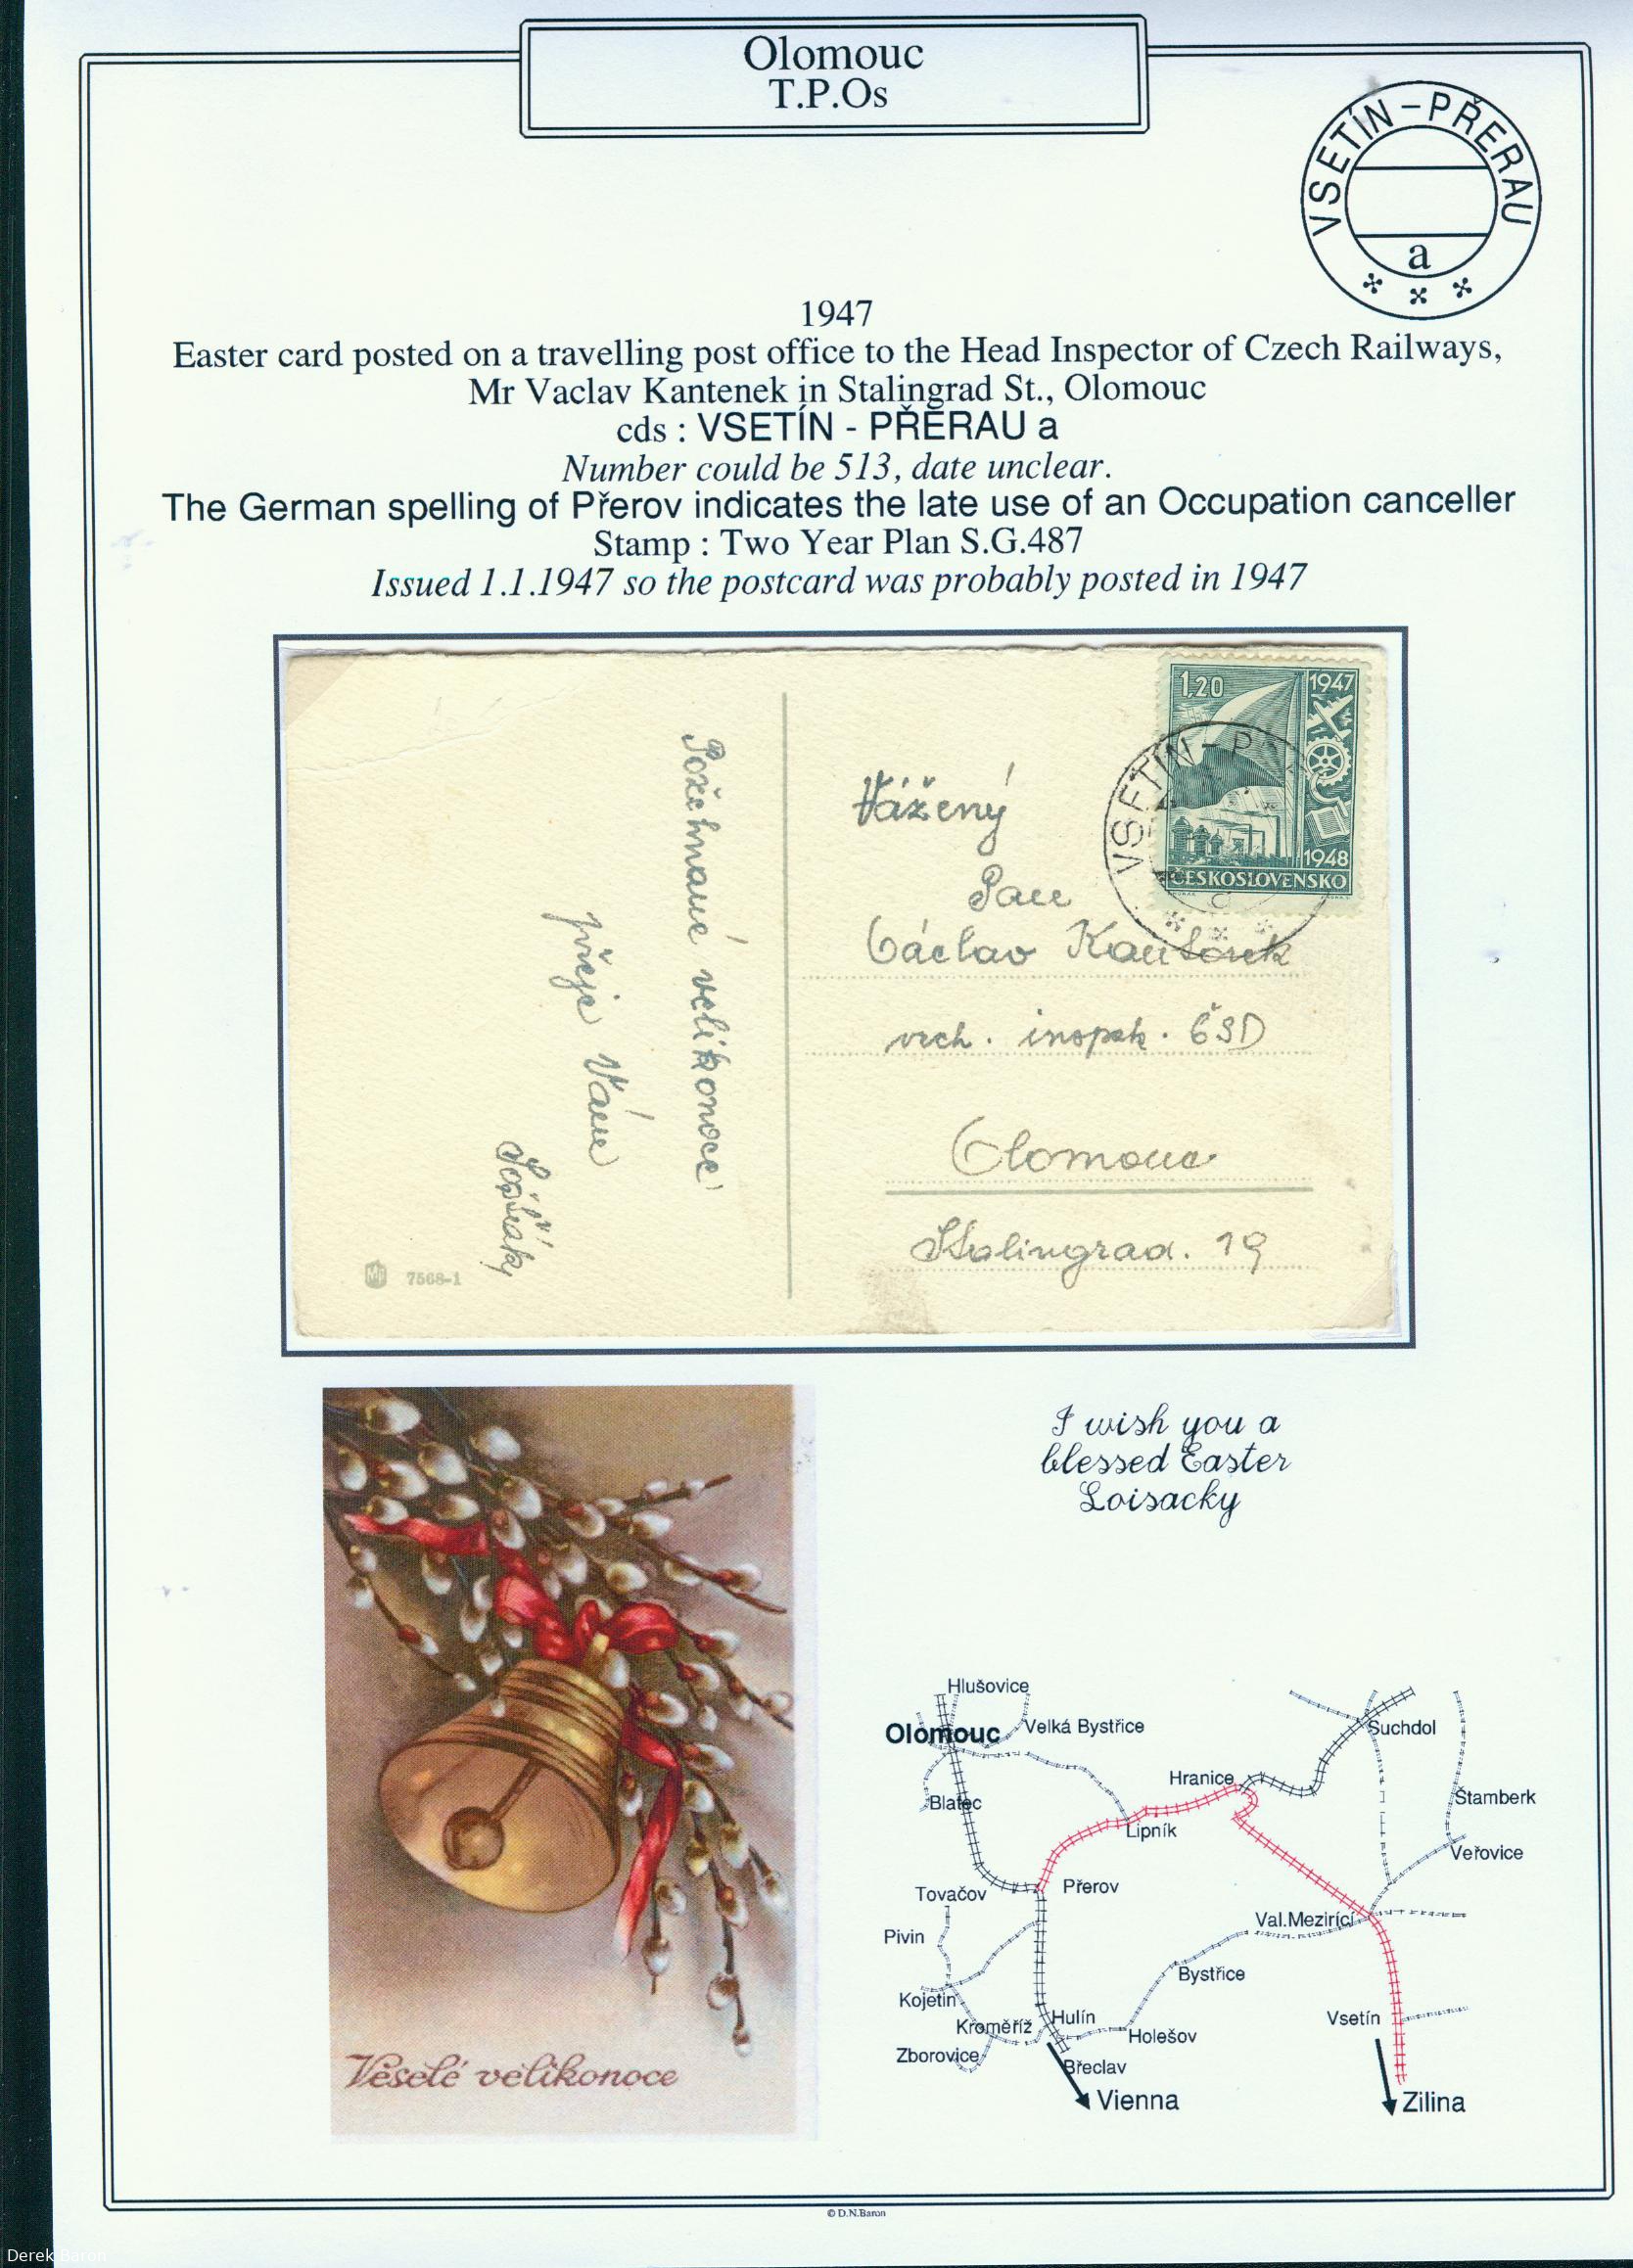 Olomouc
T.P.Os
VSETÍN – PŘERAU
a
1947
Easter card posted on a travelling post office to the Head Inspector of Czech Railways,
Mr Vaclav Kantenek in Stalingrad St., Olomouc
cds : VSETÍN - PŘERAU a
Number could be 513, date unclear.
The German spelling of Přerov indicates the late use of an Occupation canceller
Stamp : Two Year Plan S.G.487
Issued 1.1.1947 so the postcard was probably posted in 1947
1,20
1947
1948
ČESKOSLOVENSKO
VSETÍN – P
Vážený
Pan
Václav
vrch. inspek. ČSD
Olomouc
Stalingrad. 19
Požehnané velikonoce
přeje Vám
7568-1
I wish you a
blessed Easter
Loisacky
Veselé velikonoce
Hlušovice
Olomouc
Velká Bystřice
Suchdol
Hranice
Štamberk
Blatec
Lipník
Veřovice
Přerov
Tovačov
Val.Mezirící
Pivin
Bystřice
Kojetin
Hulín
Vsetín
Kroměříž
Holešov
Zborovice
Břeclav
Vienna
Zilina
© D.N.Baron
Derek Baron